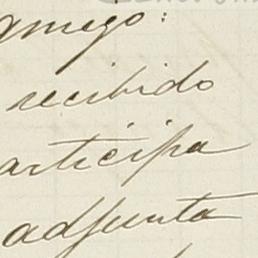 amigo:
recibido
articipa
adjunta